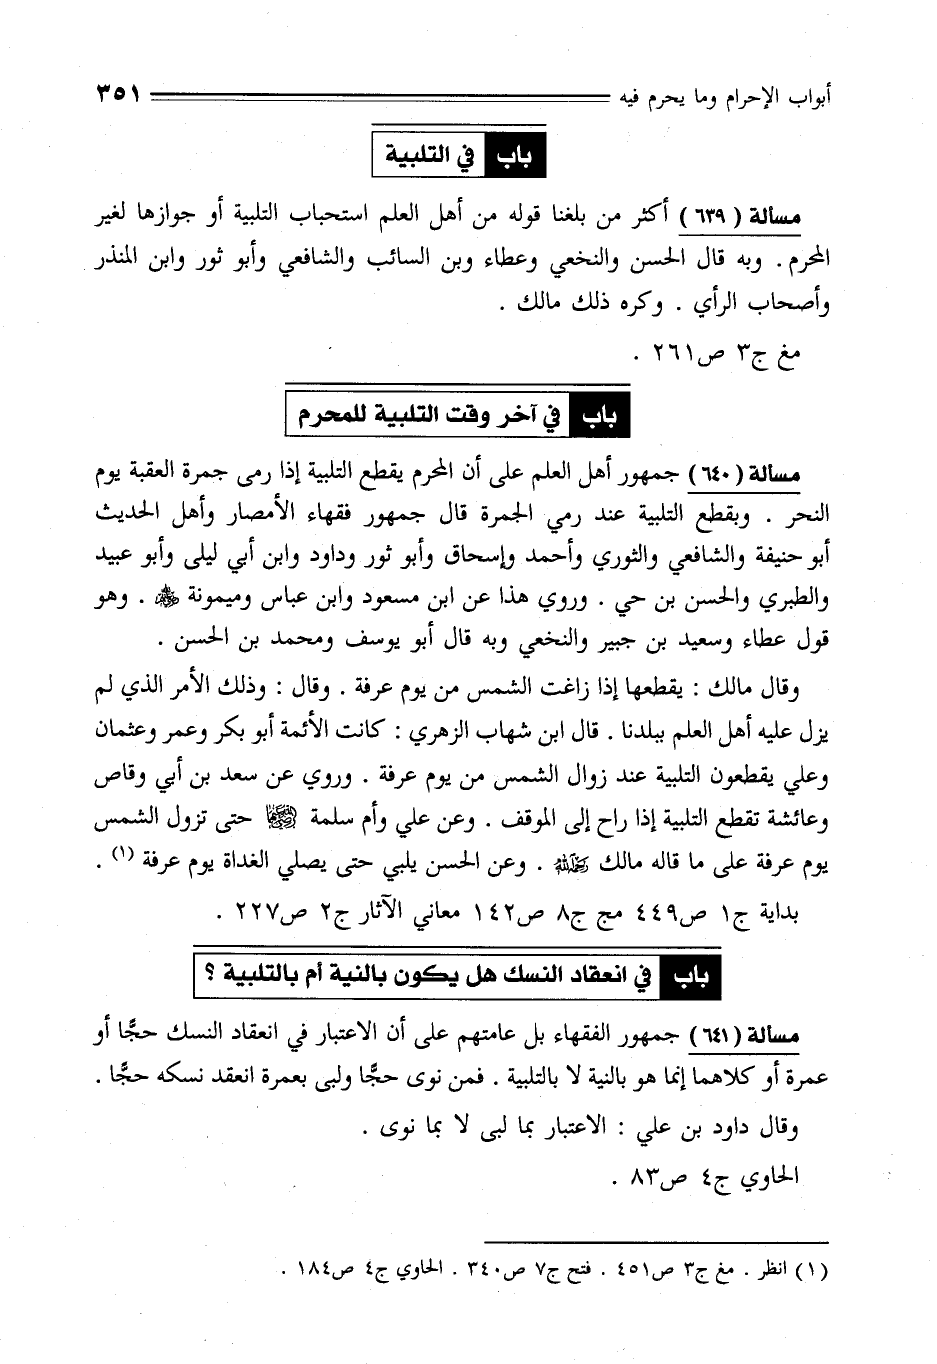 أبواب الإحرام وما يحرم فيه ٣٥١
باب في التلبية
مسألة (٦٣٩) أكثر من بلغنا قوله من أهل العلم استحباب التلبية أو جوازها لغير
المحرم. وبه قال الحسن والنخعي وعطاء وبن السائب والشافعي وأبو ثور وابن المنذر
وأصحاب الرأي . وكره ذلك مالك .
مغ ج٣ ص٢٦١ .
باب في آخر وقت التلبية للمحرم
مسألة (٦٤٠) جمهور أهل العلم على أن المحرم يقطع التلبية إذا رمى جمرة العقبة يوم
النحر . وبقطع التلبية عند رمي الجمرة قال جمهور فقهاء الأمصار وأهل الحديث
أبو حنيفة والشافعي والثوري وأحمد وإسحاق وأبو ثور وداود وابن أبي ليلى وأبو عبيد
والطبري والحسن بن حي . وروي هذا عن ابن مسعود وابن عباس وميمونة ﵃ . وهو
قول عطاء وسعيد بن جبير والنخعي وبه قال أبو يوسف ومحمد بن الحسن .
وقال مالك : يقطعها إذا زاغت الشمس من يوم عرفة . وقال : وذلك الأمر الذي لم
يزل عليه أهل العلم ببلدنا . قال ابن شهاب الزهري : كانت الأئمة أبو بكر وعمر وعثمان
وعلي يقطعون التلبية عند زوال الشمس من يوم عرفة . وروي عن سعد بن أبي وقاص
وعائشة تقطع التلبية إذا راح إلى الموقف . وعن علي وأم سلمة ﵄ حتى تزول الشمس
يوم عرفة على ما قاله مالك ﵀ . وعن الحسن يلبي حتى يصلي الغداة يوم عرفة (١) .
بداية ج١ ص٤٤٩ مج ج٨ ص١٤٢ معاني الآثار ج٢ ص٢٢٧ .
باب في انعقاد النسك هل يكون بالنية أم بالتلبية ؟
مسألة (٦٤١) جمهور الفقهاء بل عامتهم على أن الاعتبار في انعقاد النسك حجًّا أو
عمرة أو كلاهما إنما هو بالنية لا بالتلبية . فمن نوى حجًّا ولبى بعمرة انعقد نسكه حجًّا .
وقال داود بن علي : الاعتبار بما لبى لا بما نوى .
الحاوي ج٤ ص٨٣ .
(١) انظر . مغ ج٣ ص٤٥١ . فتح ج٧ ص٣٤٠ . الحاوي ج٤ ص١٨٤ .